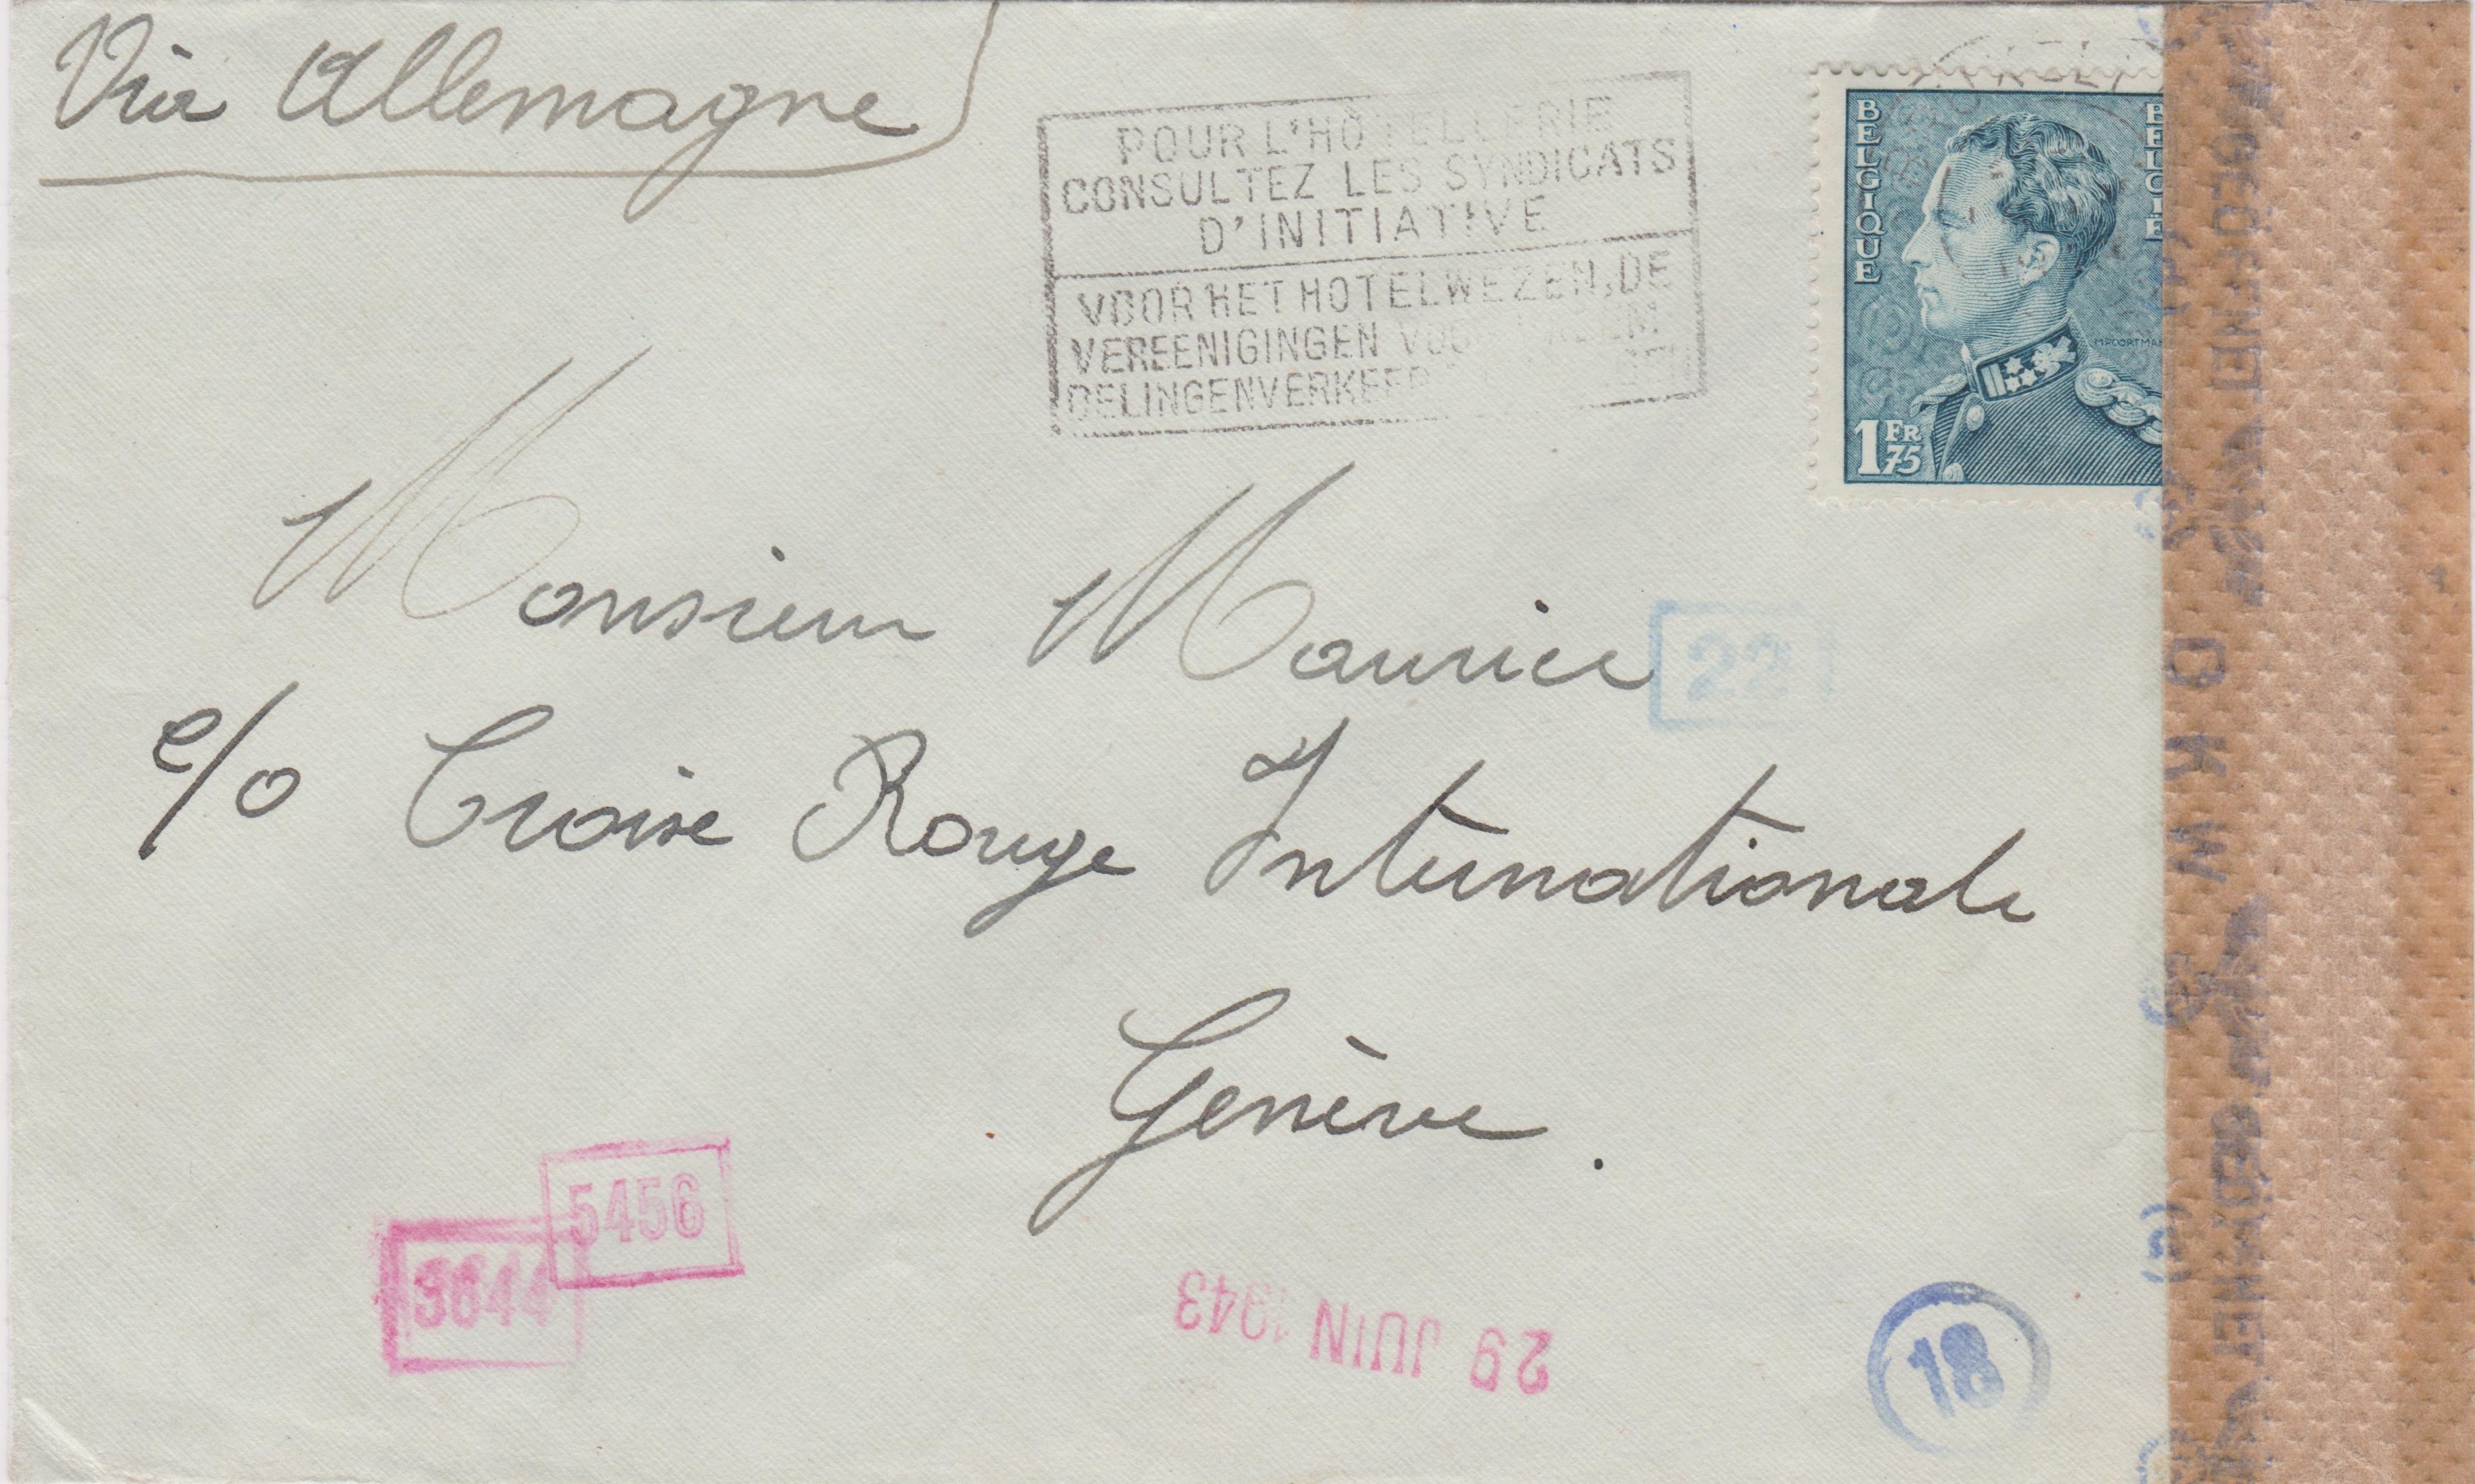 Via Allemagne
POUR L'HÔTELLERIE
CONSULTEZ LES SYNDICATS
D'INITIATIVE
VOOR HET HOTELWEZEN, DE
VEREENIGINGEN
DELINGENVERKEER
BELGIQUE
BELGIË
MPOORTMAN
1 FR 75
Monsieur Maurice
22
c/o Croise Rouge Internationale
Genève.
5456
3644
29 JUIN 1943
18
GEÖFFNET
OKW
GEÖFFNET